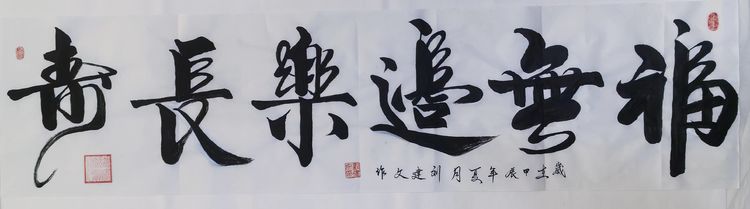 福無邊樂長寿
歲在甲辰年夏月刘建文作